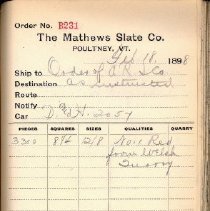 Order No. B231
The Mathews Slate Co.
POULTNEY, VT.
Feb 18, 1898
Ship to Order of A R & Co
Destination as instructed
Route
Notify
Car D. & H. 2057
PIECES SQUARES SIZES QUALITIES QUARRY
3300 8 12/8 No. 1 Red
from Welsh
Quarry